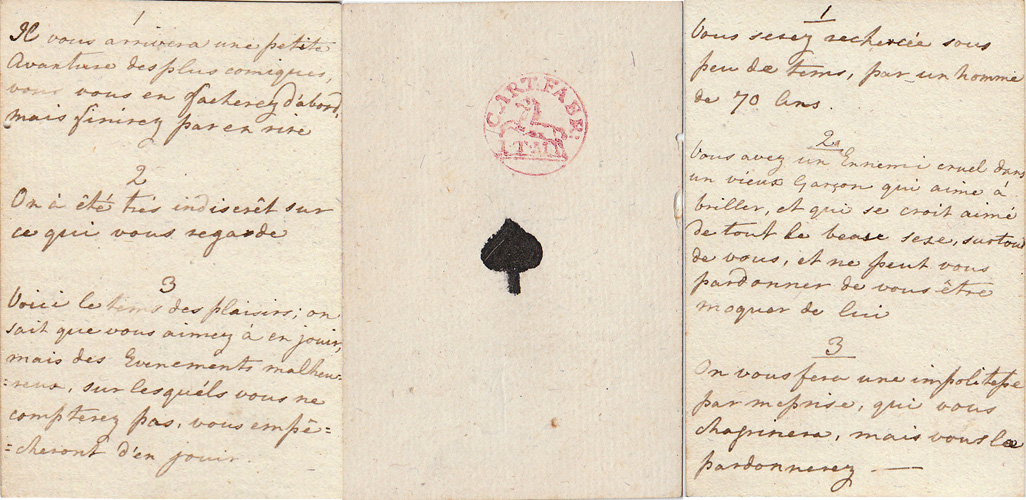 1
Il vous arrivera une petite
Avanture des plus comiques,
vous vous en facherez d'abord,
mais finirez par en rire
2
On à été trés indiscrêt sur
ce qui vous regarde
3
Voici le tems des plaisirs; on
sait que vous aimez à en jouir,
mais des Evenements malheu-
=reux, sur lesquéls vous ne
compterez pas, vous empê=
=cheront d'en jouir.
CART. FABR.
I.T.M
1
Vous serez rechercée sous
peu de tems, par un homme
de 70 Ans.
2
Vous avez un Ennemi cruel dans
un vieux Garçon qui aime à
briller, et qui se croit aimé
de tout le beau sexe, surtout
de vous, et ne peut vous
pardonner de vous être
moquer de lui
3
On vous fera une impolitesse
par meprise, qui vous
chagrinera, mais vous la
pardonnerez —